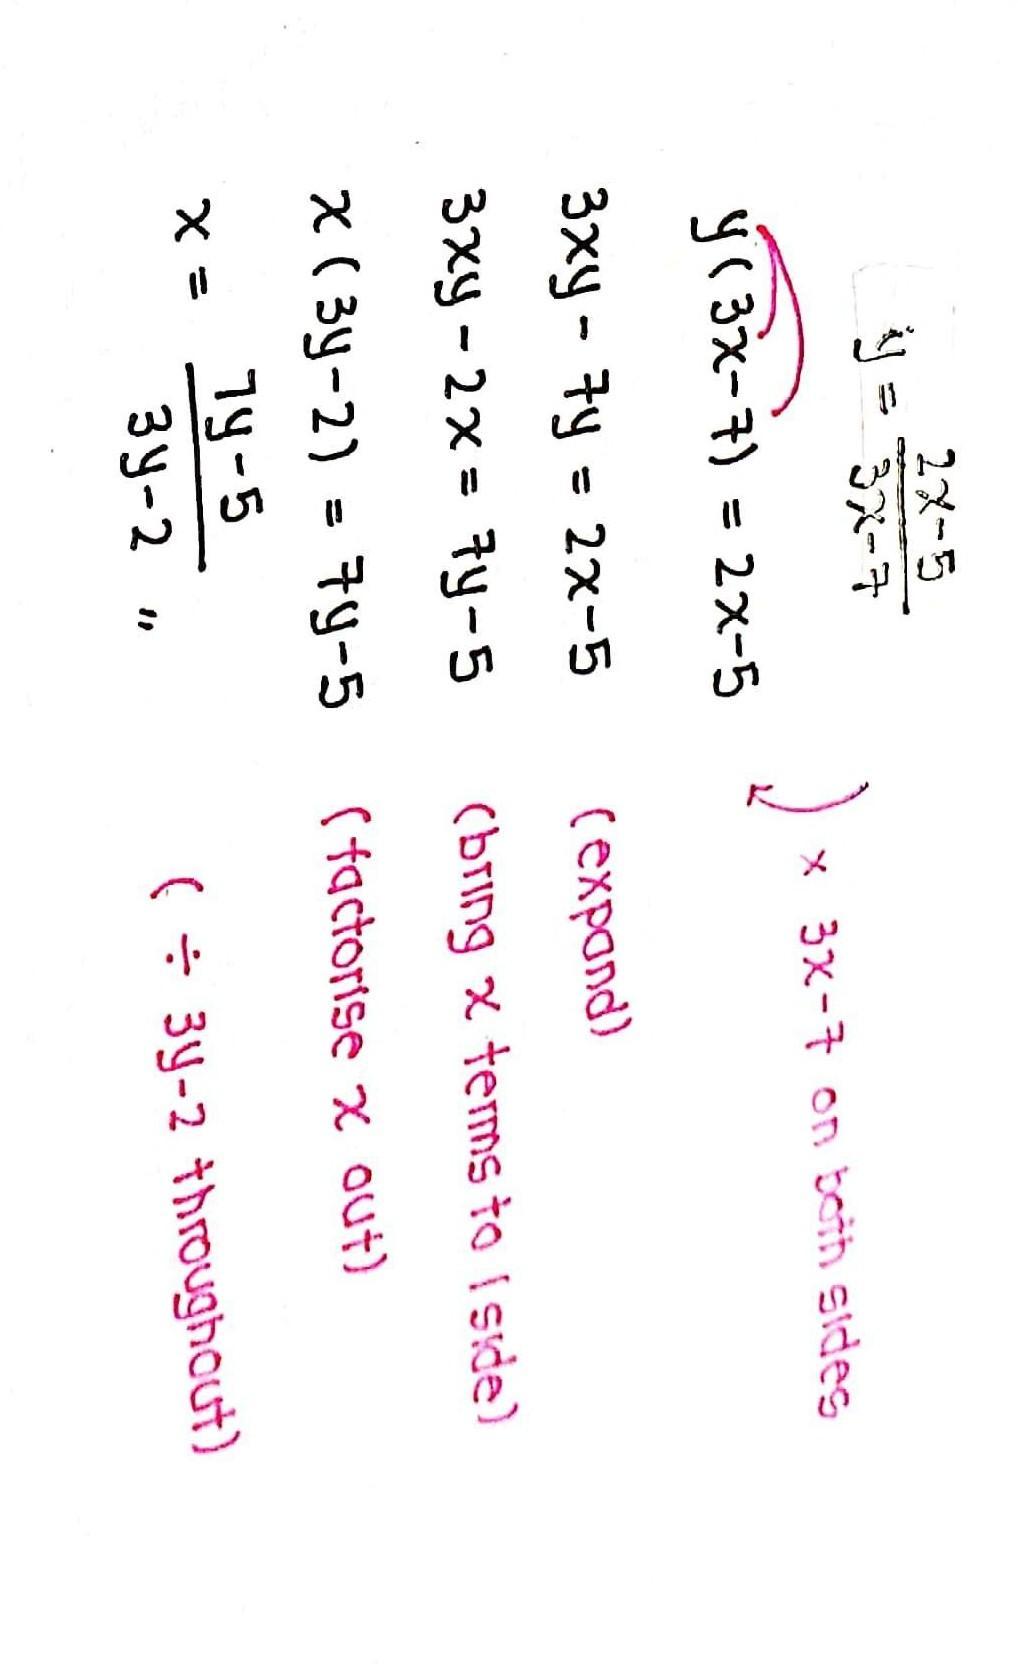 y = 2x-5 / 3x-7
y(3x-7) = 2x-5 x 3x-7 on both sides
3xy - 7y = 2x-5 (expand)
3xy - 2x = 7y-5 (bring x terms to 1 side)
x (3y-2) = 7y-5 (factorise x out)
x = 7y-5 / 3y-2 " ( ÷ 3y-2 throughout)